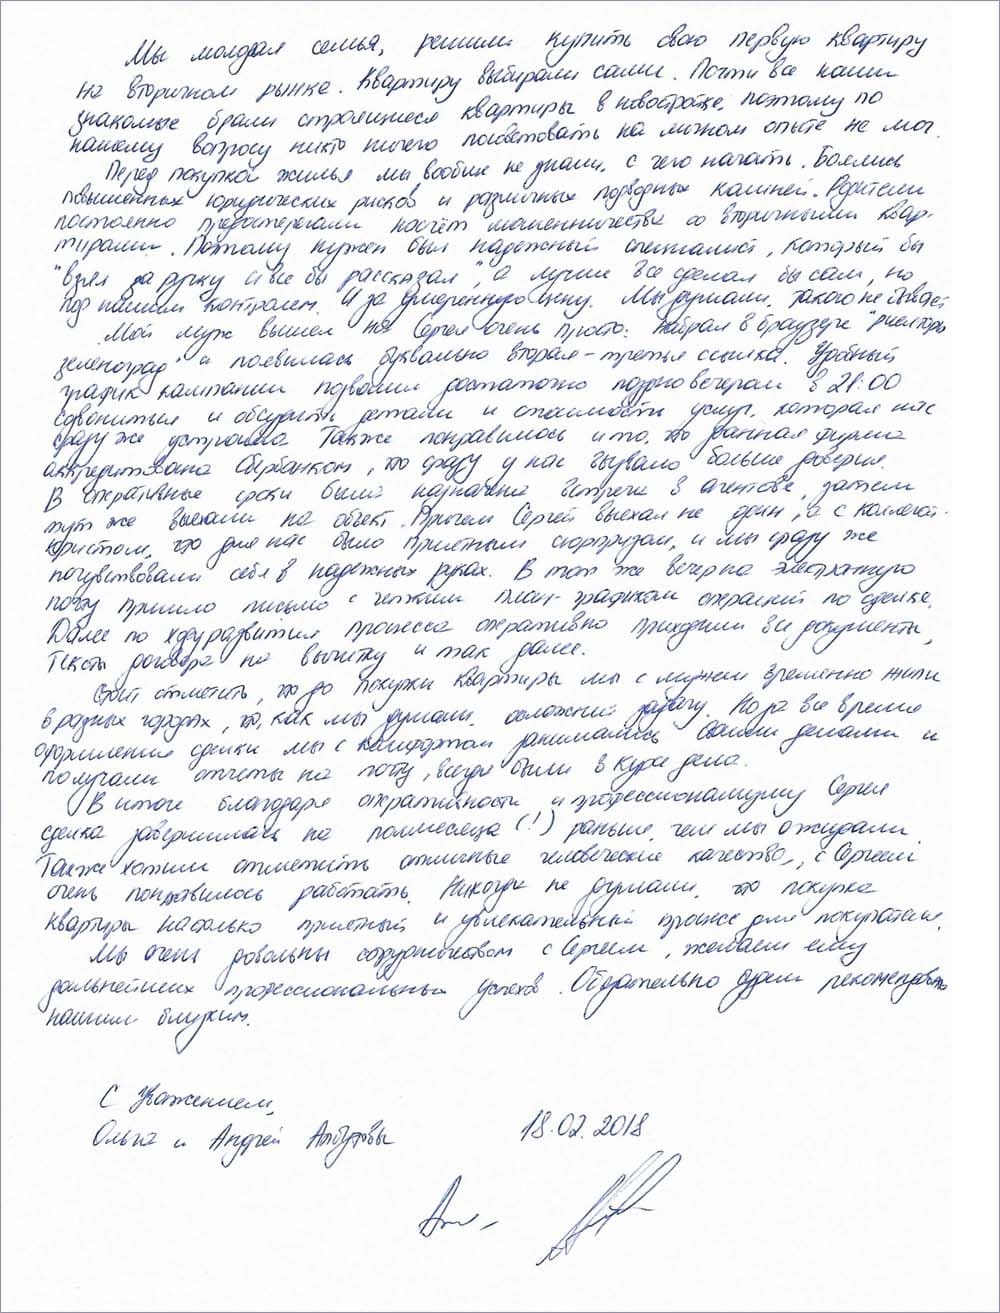 Мы молодая семья, решили купить свою первую квартиру
на вторичном рынке. Квартиру выбирали сами. Почти все наши
знакомые брали строящиеся квартиры в новостройке, поэтому по
нашему вопросу никто ничего посоветовать на личном опыте не мог.
Перед покупкой жилья мы вообще не знали, с чего начать. Боялись
повышенных юридических рисков и различных подводных камней. Родители
постоянно предостерегали насчёт мошенничества со вторичными квар-
тирами. Поэтому нужен был надежный специалист, который бы
"взял за ручку и все бы рассказал", а лучше все сделал бы сам, но
под нашим контролем. И за умеренную цену. Мы думали, такого не бывает
Мой муж вышел на Сергея очень просто: набрал в браузере "риелторы
зеленоград" и появилась буквально вторая-третья ссылка. Удобный
график кампании позволил достаточно поздно вечером в 21:00
созвониться и обсудить детали и стоимость услуг, которая нас
сразу же устроила. Также понравилось и то, что данная фирма
аккредитована Сбербанком, что сразу у нас вызвало больше доверия.
В оперативные сроки была назначена встреча в агентсве, затем
тут же выехали на объект. Причем Сергей выехал не один, а с коллегой-
юристом, что для нас было приятным сюрпризом, и мы сразу же
почувствовали себя в надежных руках. В тот же вечер на электронную
почту пришло письмо с четким план-графиком операций по сделке.
Далее по ходу развития процесса оперативно приходили все документы,
тексты договора на вычитку и так далее.
Стоит отметить, что до покупки квартиры мы с мужем временно жили
в разных городах, что, как мы думали, осложнит задачу. Но за все время
оформления сделки мы с комфортом занимались своими делами и
получали отчеты на почту, всегда были в курсе дела.
В итоге благодаря оперативности и профессионализму Сергея
сделка завершилась на полмесяца (!) раньше, чем мы ожидали.
Также хотим отметить отличные человеческие качества, с Сергеем
очень понравилось работать. Никогда не думали, что покупка
квартиры настолько приятный и увлекательный процесс для покупателя.
Мы очень довольны сотрудничеством с Сергеем, желаем ему
дальнейших профессиональных успехов. Обязательно будем рекомендовать
нашим близким.
С Уважением,
Ольга и Андрей
18.02.2018